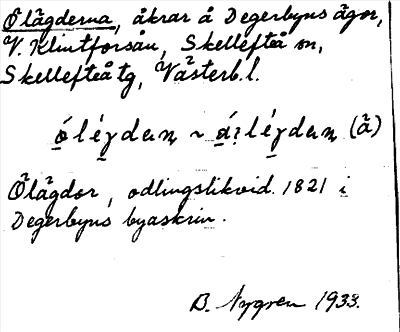 Ölägderna, åkrar å Degerbyns ägor,
V. Klintforsån, Skellefteå sn,
Skellefteå tg, Västerb. l.
Ölägdor, odlingslikvid. 1821 i
Degerbyns byaskrin.
B. Nygren 1933.